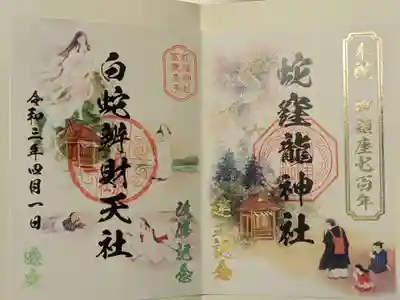 奉祝 御鎮座七百年
蛇窪龍神社
遷座記念
白蛇辨財天社
改勝記念
令和三年四月一日